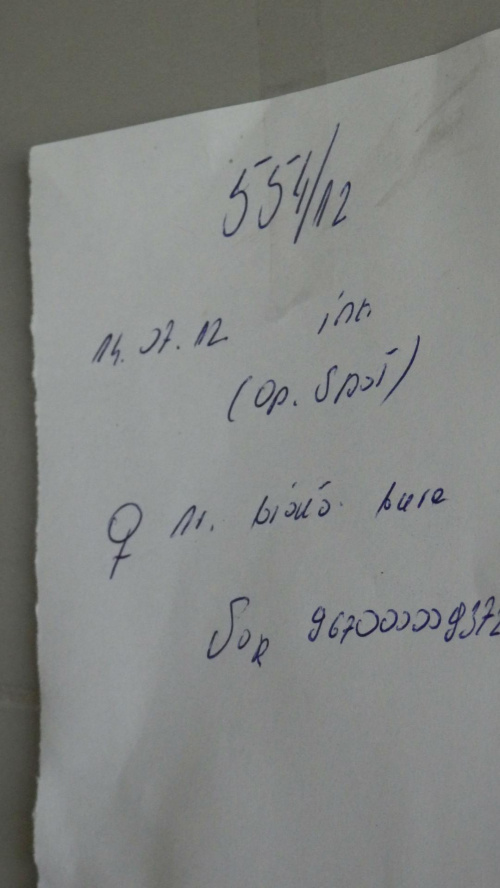 554/12
14.07.12 int.
(Op. Spot)
♀ 1r. biało. bura
96700000937